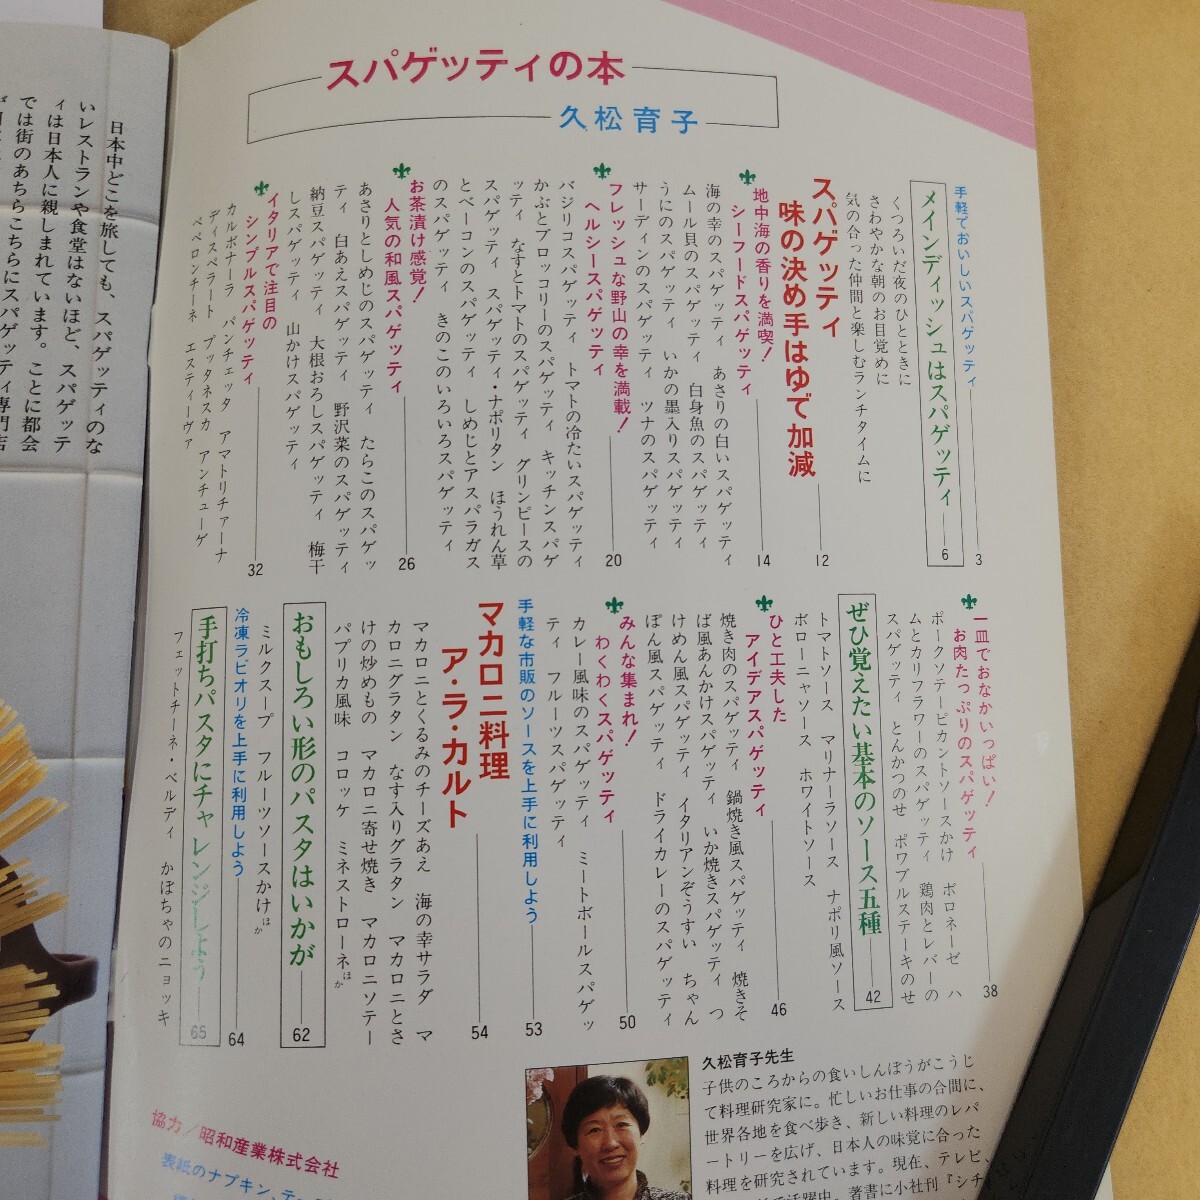 スパゲッティの本
久松育子
手軽でおいしいスパゲッティ 3
メインディッシュはスパゲッティ 6
くつろいだ夜のひとときに
さわやかな朝のお目覚めに
気の合った仲間と楽しむランチタイムに
スパゲッティ
味の決め手はゆで加減 12
地中海の香りを満喫!
シーフードスパゲッティ 14
海の幸のスパゲッティ あさりの白いスパゲッティ
ムール貝のスパゲッティ 白身魚のスパゲッティ
うにのスパゲッティ いかの墨入りスパゲッティ
サーディンのスパゲッティ ツナのスパゲッティ
フレッシュな野山の幸を満載!
ヘルシースパゲッティ 20
バジリコスパゲッティ トマトの冷たいスパゲッティ
かぶとブロッコリーのスパゲッティ キッチンスパゲ
ッティ なすとトマトのスパゲッティ グリンピースの
スパゲッティ スパゲッティ・ナポリタン ほうれん草
とベーコンのスパゲッティ しめじとアスパラガス
のスパゲッティ きのこのいろいろスパゲッティ
お茶漬け感覚!
人気の和風スパゲッティ 26
あさりとしめじのスパゲッティ たらこのスパゲッ
ティ 白あえスパゲッティ 野沢菜のスパゲッティ
納豆スパゲッティ 大根おろしスパゲッティ 梅干
しスパゲッティ 山かけスパゲッティ
イタリアで注目の
シンプルスパゲッティ 32
カルボナーラ パンチェッタ アマトリチァーナ
ディスペラート プッタネスカ アンチューゲ
ペペロンチーネ エスティーヴァ
一皿でおなかいっぱい!
お肉たっぷりのスパゲッティ 38
ポークソテーピカントソースかけ ボロネーゼ ハ
ムとカリフラワーのスパゲッティ 鶏肉とレバーの
スパゲッティ とんかつのせ ポワブルステーキのせ
ぜひ覚えたい基本のソース五種 42
トマトソース マリナーラソース ナポリ風ソース
ボローニャソース ホワイトソース
ひと工夫した
アイデアスパゲッティ 46
焼き肉のスパゲッティ 鍋焼き風スパゲッティ 焼きそ
ば風あんかけスパゲッティ いか焼きスパゲッティ つ
けめん風スパゲッティ イタリアンぞうすい ちゃん
ぽん風スパゲッティ ドライカレーのスパゲッティ
みんな集まれ!
わくわくスパゲッティ 50
カレー風味のスパゲッティ ミートボールスパゲッ
ティ フルーツスパゲッティ
手軽な市販のソースを上手に利用しよう 53
マカロニ料理
ア・ラ・カルト 54
マカロニとくるみのチーズあえ 海の幸サラダ マ
カロニグラタン なす入りグラタン マカロニとさ
けの炒めもの マカロニ寄せ焼き マカロニソテー
パプリカ風味 コロッケ ミネストローネほか
おもしろい形のパスタはいかが 62
ミルクスープ フルーツソースかけほか
冷凍ラビオリを上手に利用しよう 64
手打ちパスタにチャレンジしよう 65
フェットチーネ・ベルディ かぼちゃのニョッキ
協力/昭和産業株式会社
表紙のナプキン、テー
久松育子先生
子供のころからの食いしんぼうがこうじ
て料理研究家に。忙しいお仕事の合間に、
世界各地を食べ歩き、新しい料理のレパ
ートリーを広げ、日本人の味覚に合った
料理を研究されています。現在、テレビ、
で活躍中。著書に小社刊『シチ
日本中どこを旅しても、スパゲッティのな
いレストランや食堂はないほど、スパゲッテ
ィは日本人に親しまれています。ことに都会
では街のあちらこちらにスパゲッティ専門店